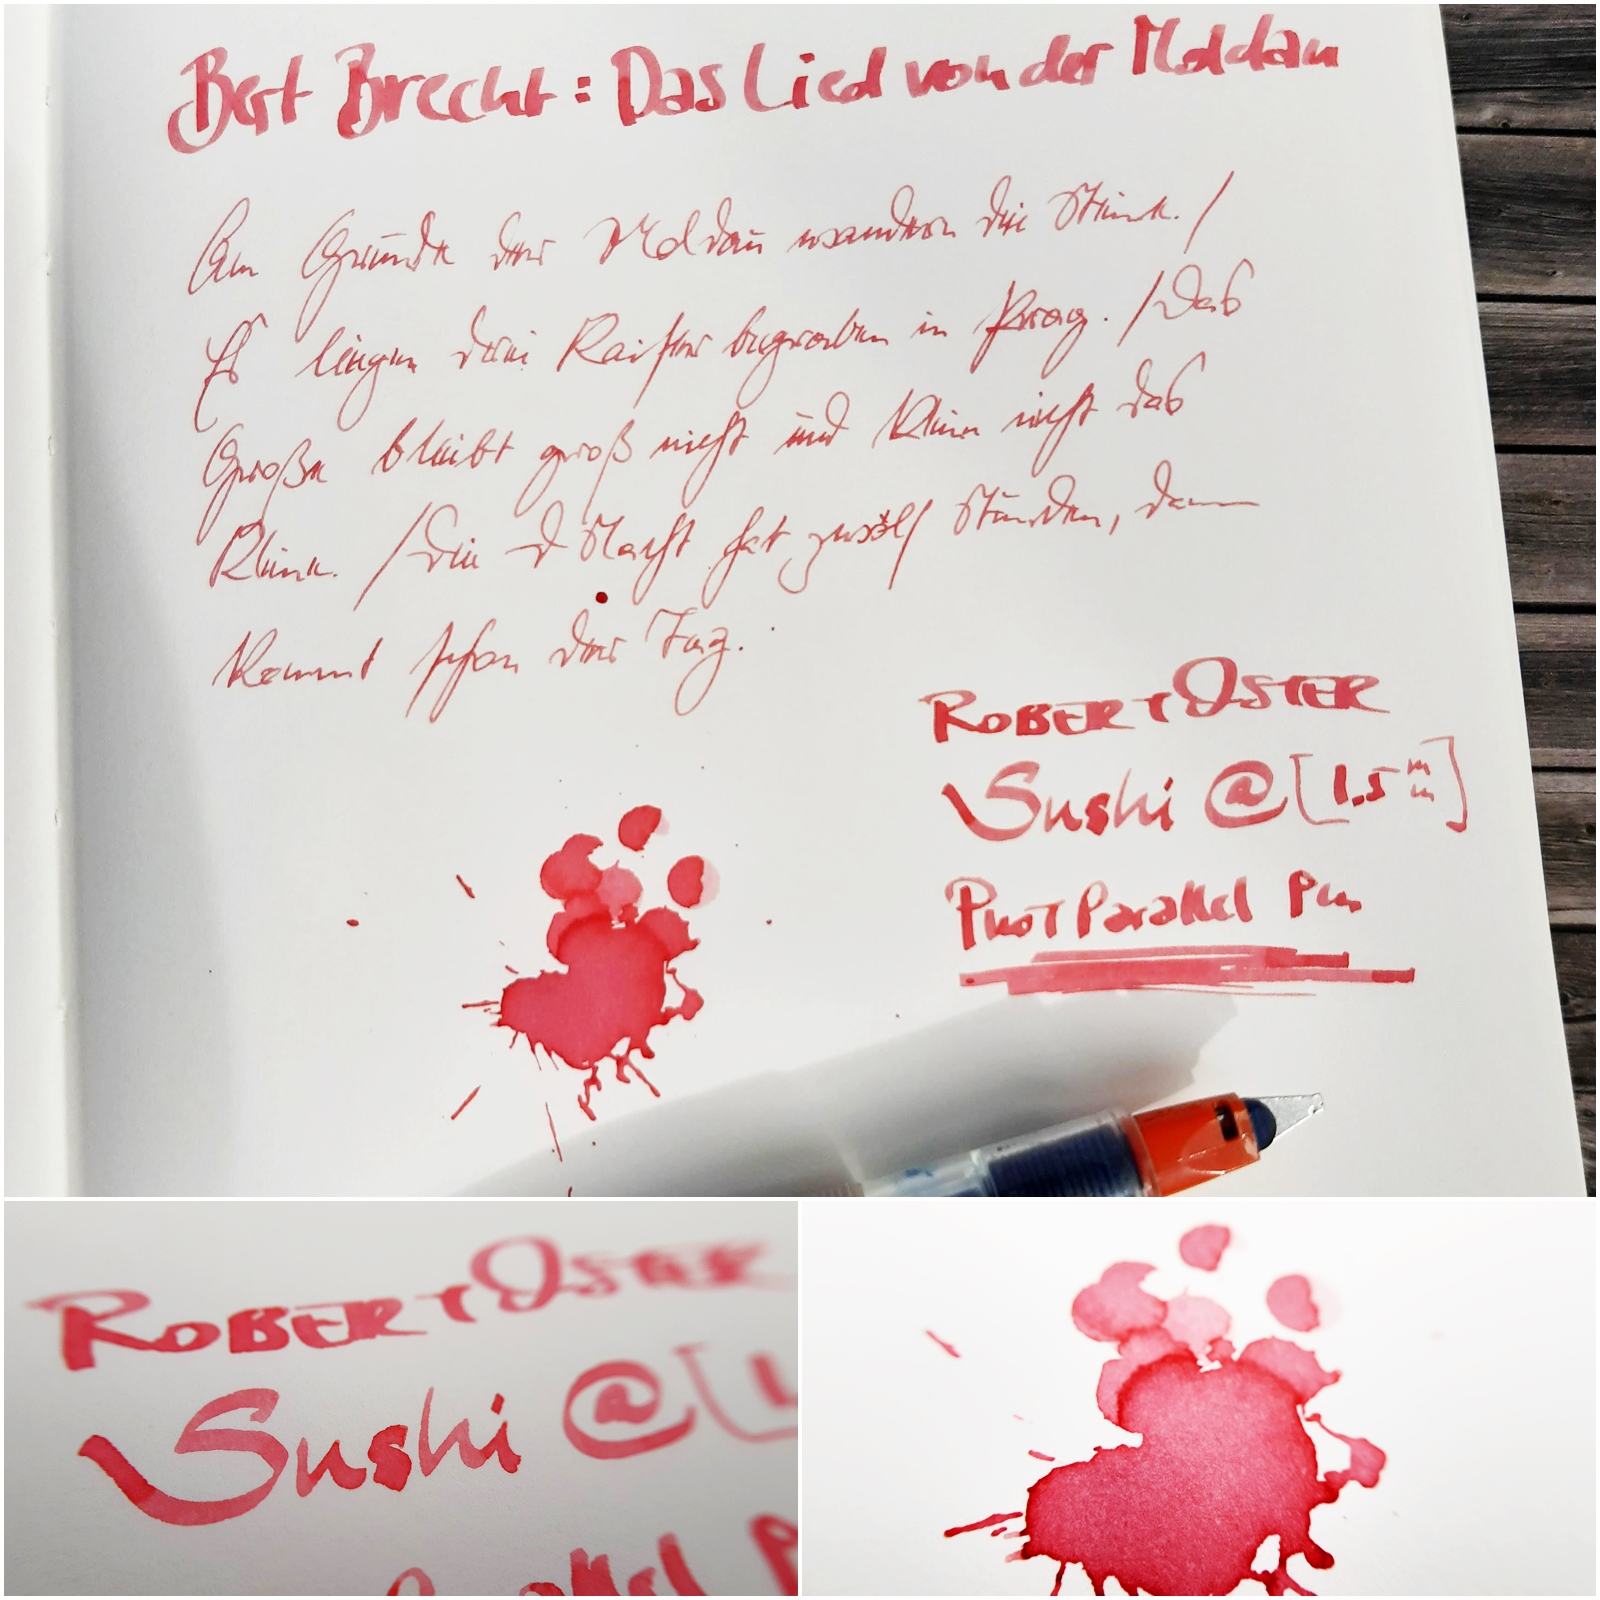 Bert Brecht: Das Lied von der Moldau
Am Grunde der Moldau wandern die Steine. /
Es liegen drei Kaiser begraben in Prag. / Das
Große bleibt groß nicht und klein nicht das
Kleine. / Die Nacht hat zwölf Stunden, dann
kommt schon der Tag.
ROBERT OSTER
Sushi @ [1.5 mm]
Pilot Parallel Pen
ROBERT OSTER
Sushi @ [1
Parallel P